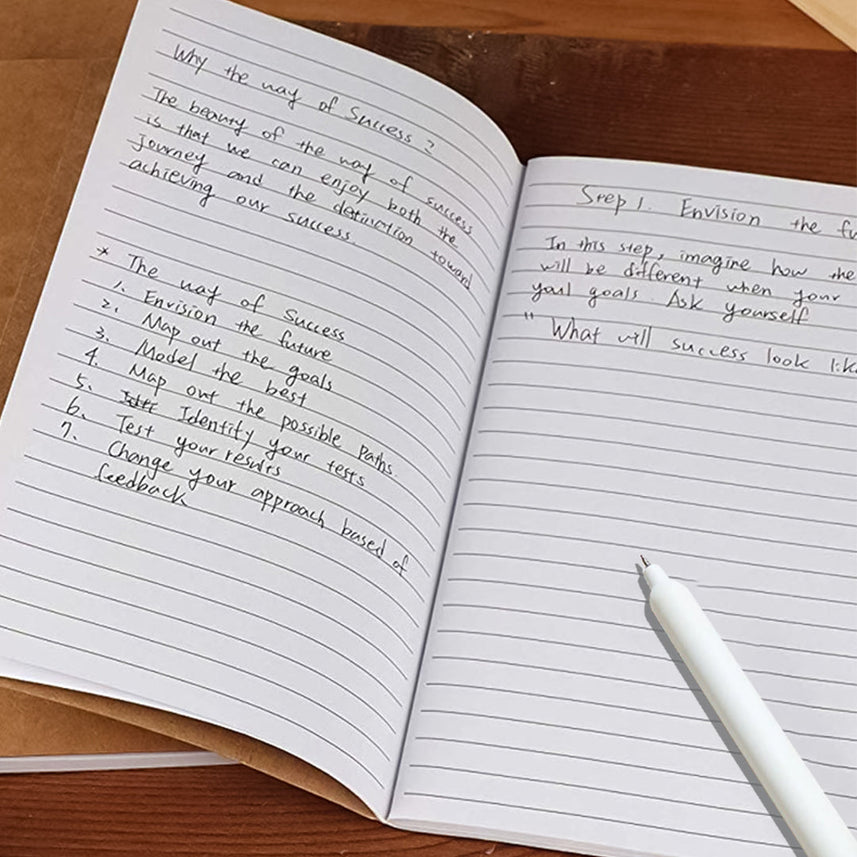 Why the way of Success?
The beauty of the way of success
is that we can enjoy both the
Journey and the detinction toward
achieving our success.
* The way of Success
1. Envision the future
2. Map out the goals
3. Model the best
4. Map out the possible paths.
5. Identify your tests
6. Test your results
7. Change your approach based of
feedback
Step 1. Envision the fu
In this step, imagine how the
will be different when your
your goals. Ask yourself
" What will success look lik